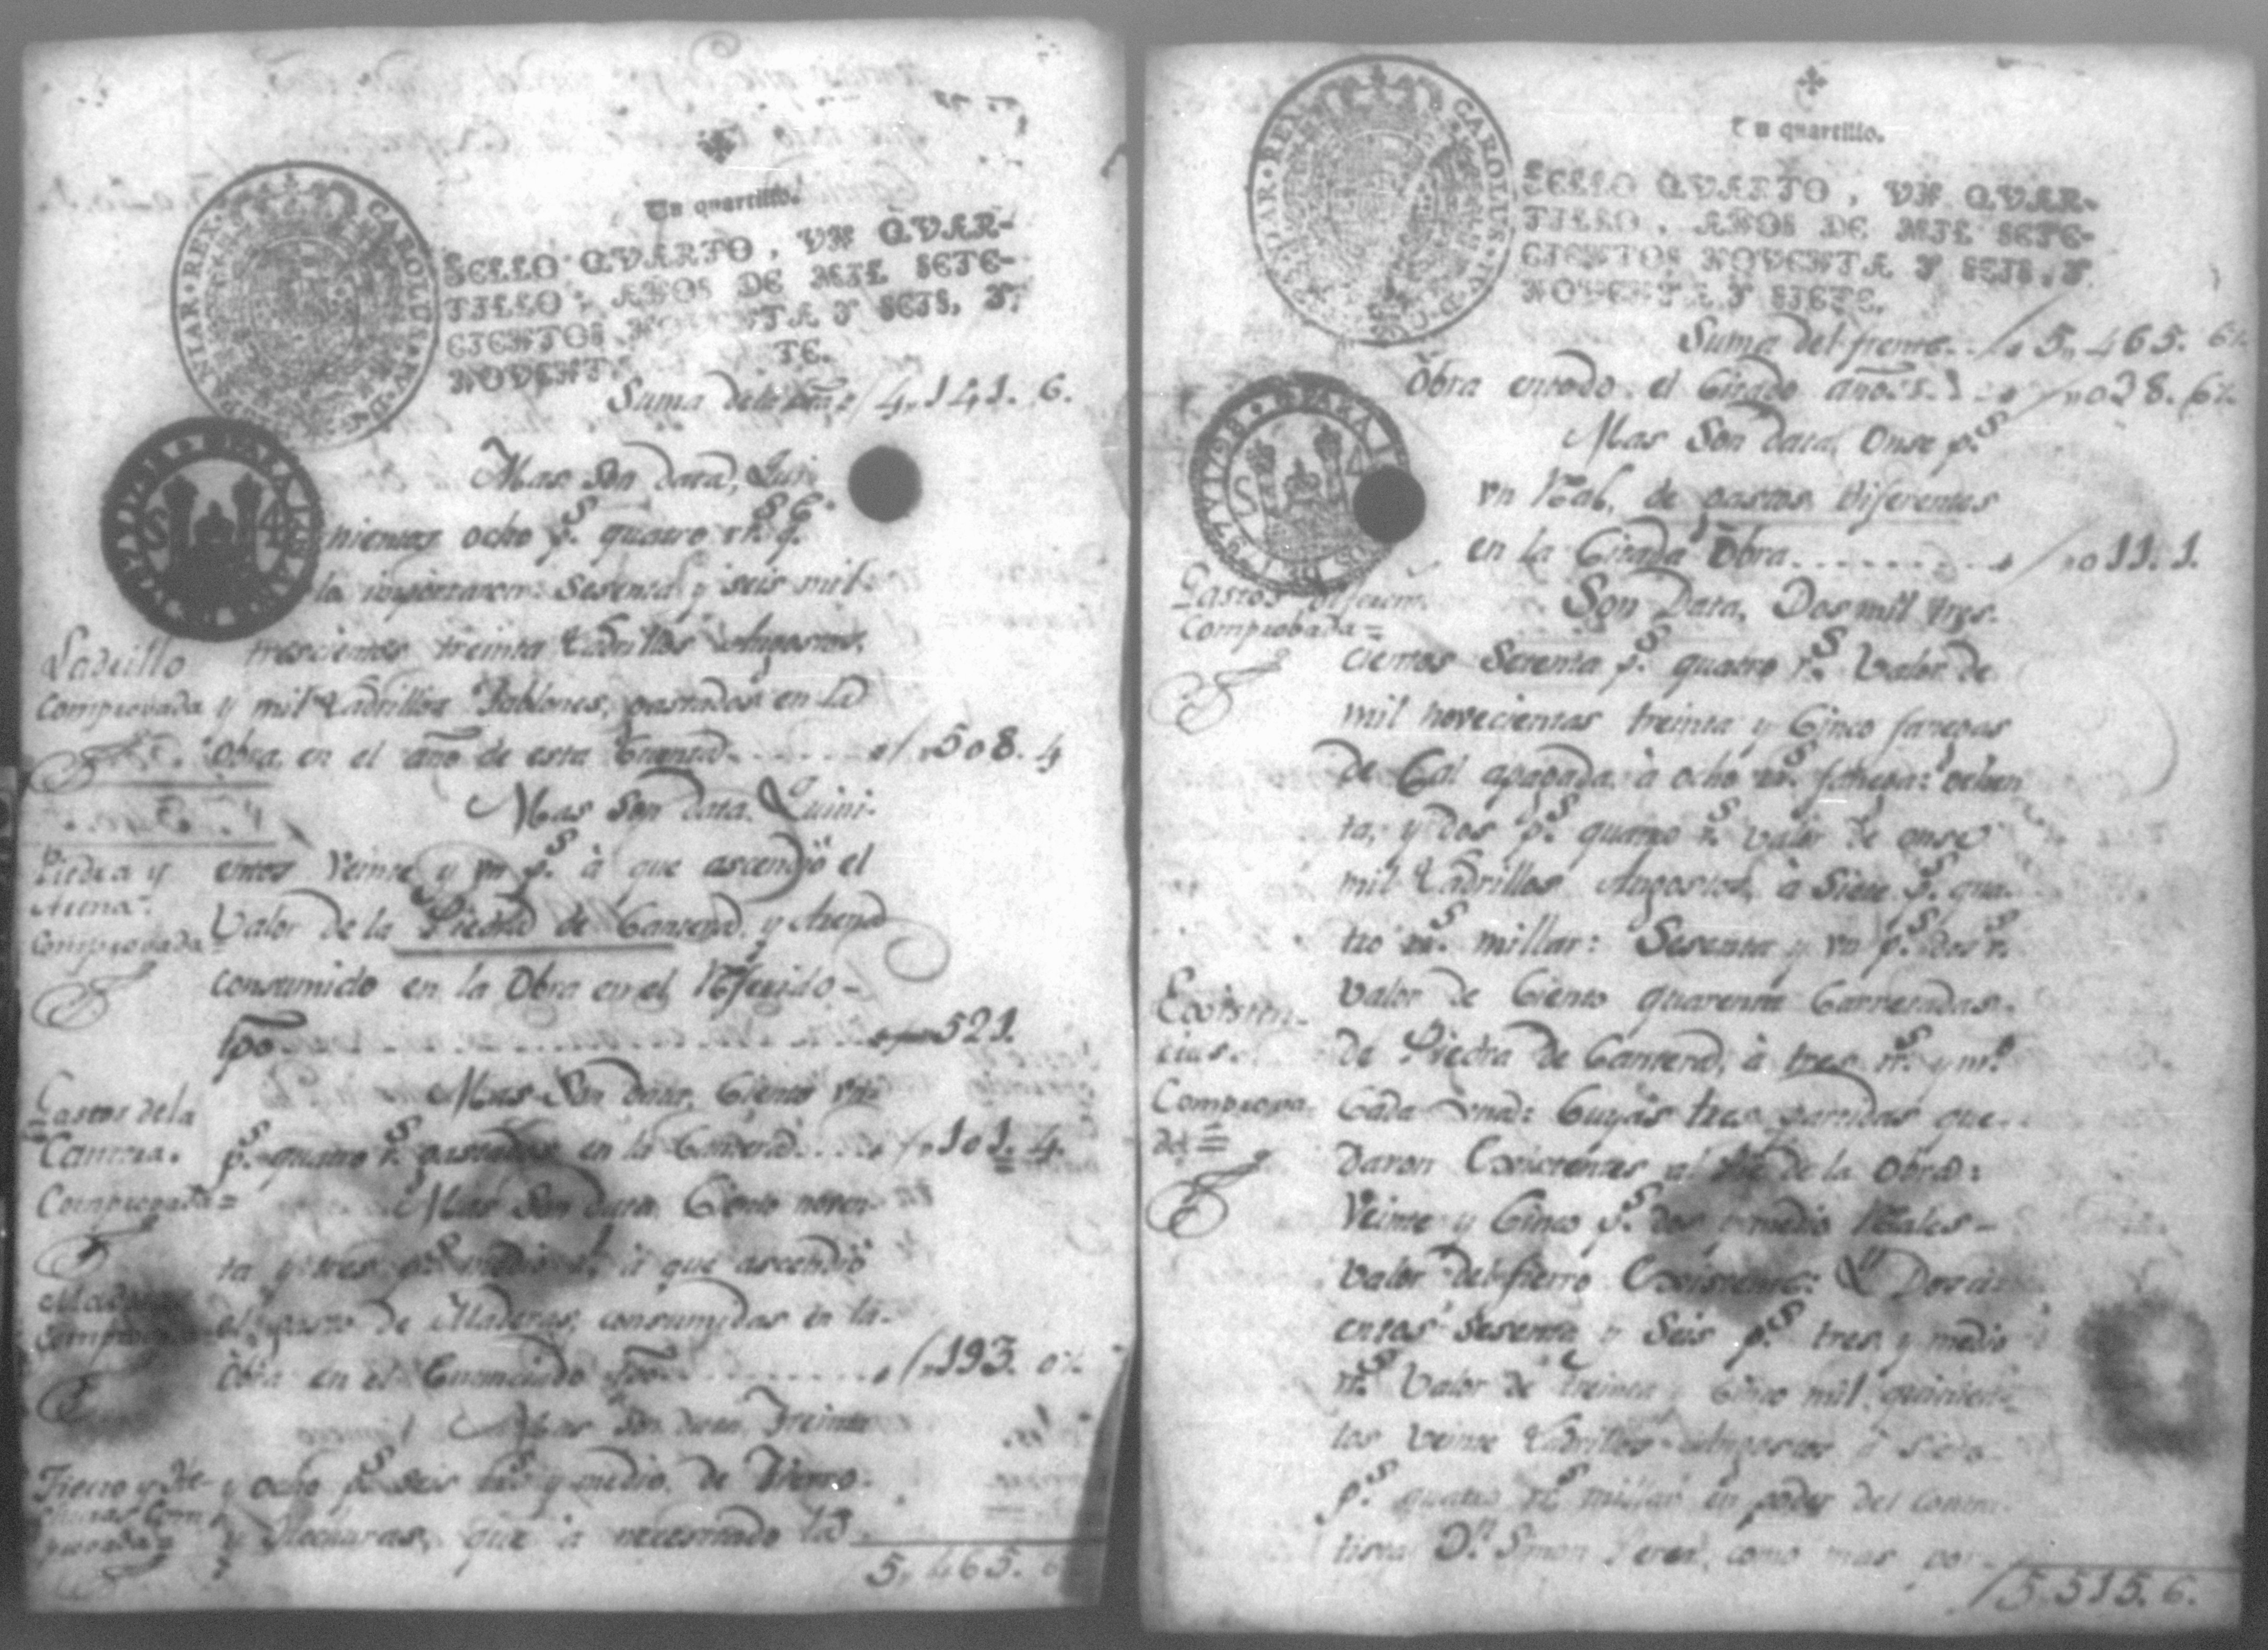 Un quartillo.
SELLO QVARTO, VN QVAR-
TILLO, AÑOS DE MIL SETE-
CIENTOS NOVENTA Y SEIS, Y
NOVENTA TE.
CAROLUS IV D G HISPANIAR REX
Suma dela bta 4,141. 6.
Mas Son data, Qui-
nientos ocho p.s quatro rr.s q.e
importaron Sesenta y seis mil
trescientos treinta Ladrillos Angostos,
y mil Ladrillos Tablones, gastados en la
Obra en el año de esta Cuenta 508. 4
Ladrillo
Comprovada
Mas Son data, Quini-
entos Veinte y vn p.s à que ascendiò el
Valor de la Piedra de Cantera, y Arena
consumido en la Obra en el Referido
tpo 521.
Piedra y
Arena
Comprovada
Mas Son data, Ciento vn
p.s quatro r.s gastados en la Cantera 101. 4.
Gastos dela
Cantera.
Comprovada=
Mas Son data Ciento noven-
ta y tres p.s medio r. à que ascendiò
el gasto de Maderas, consumidas en la
Obra en el Enunciado tpo 193. 0½
Mas Son data, Treinta
y ocho p.s seis rr.s y medio, de Fierro
y Hechuras, que à necesitado la
Fierro y He-
churas Com-
provada
5,465. 6
Un quartillo.
SELLO QVARTO, VN QVAR-
TILLO, AÑOS DE MIL SETE-
CIENTOS NOVENTA Y SEIS, Y
NOVENTA Y SIETE.
CAROLUS IV D G HISPANIAR REX
Suma del frente 5,465. 6½
Obra en todo el Citado año 038. 6½
Mas Son data, Onse p.s
vn Real, de gastos diferentes
en la Citada Obra 011. 1.
Gastos diferen.
Comprobada=
Son Data, Dos mil tres-
cientos Setenta p.s quatro r.s Valor de
mil novecientas treinta y Cinco fanegas
de Cal apagada à ocho rr.s fanega: ochen
ta, y dos p.s quatro r.s valor de onse
mil Ladrillos Angostos, à Siete p.s qua-
tro rr.s millar: Sesenta y vn p.s dos r.s
Valor de Ciento quarenta Carretadas
de Piedra de Cantera, à tres rr.s y m.o
Cada vna: Cuyas tres partidas que-
daron Existentes al de la Obra:
Veinte y Cinco p.s dos y medio Reales
Valor del fierro Existente: Y Dosci-
entos Sesenta y Seis p.s tres y medio
rr.s Valor de treinta y Cinco mil quinien-
tos Veinte Ladrillos Angostos à Siete
p.s quatro rr.s millar en poder del Contra-
tista D.n Simon Perea, como mas por
Existen-
cias.
Comprova-
da=
5.515. 6.